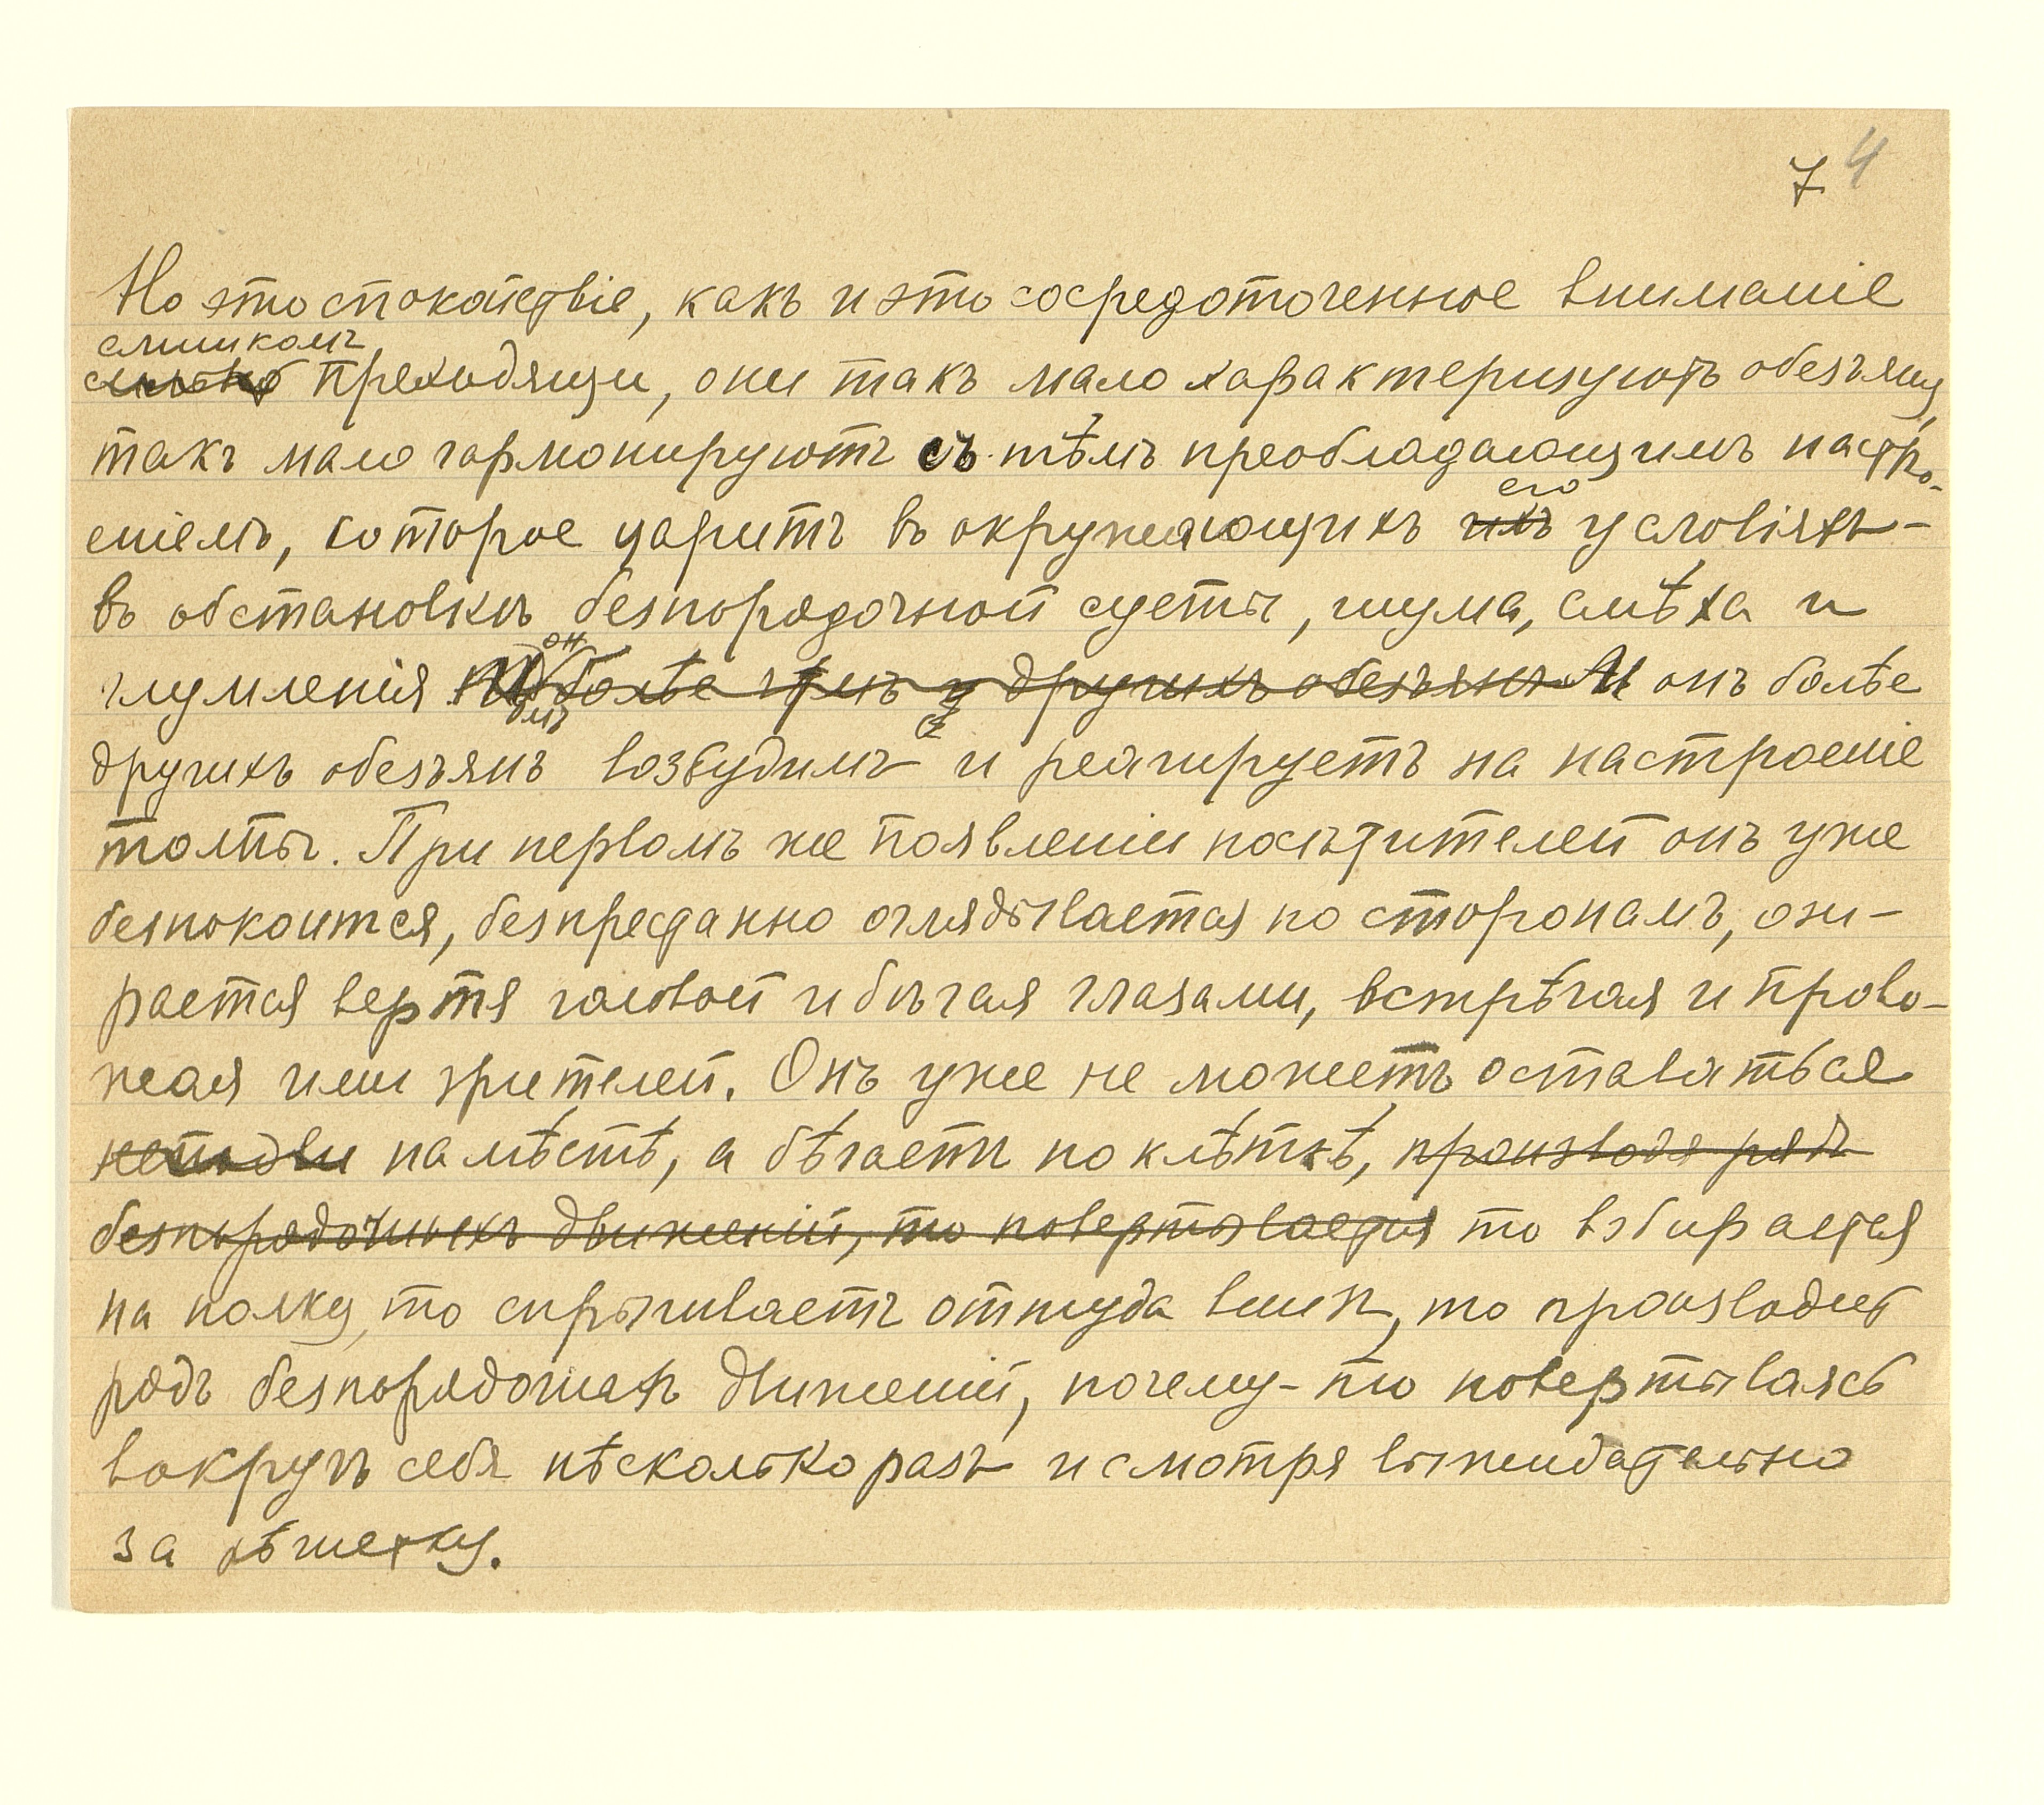 7 4
Но это спокойствіе, какъ и это сосредоточенное вниманіе
слишкомъ
преходящи, они такъ мало характеризуютъ обезьяну,
такъ мало гармонируютъ съ тѣмъ преобладающимъ настро-
еніемъ, которое царитъ въ окружающихъ ихъ его условіяхъ –
въ обстановкѣ безпорядочной суеты, шума, смѣха и
глумленія болѣе чѣмъ у другихъ обезьянъ И онъ болѣе
другихъ обезьянъ возбудимъ и реагируетъ на настроеніе
толпы. При первомъ же появленіи посѣтителей онъ уже
безпокоится, безпрестанно оглядывается по сторонамъ, ози-
рается вертя головой и бѣгая глазами, встрѣчая и прово-
жая ими зрителей. Онъ уже не можетъ оставаться
неподви на мѣстѣ, а бѣгаетъ по клѣткѣ, производя рядъ
безпорядочныхъ движеній, то повертывается то взбирается
на полку, то спрыгиваетъ оттуда внизъ, то производитъ
рядъ безпорядочныхъ движеній, почему-то повертываясь
вокругъ себя нѣсколько разъ и смотря выжидательно
за рѣшетку.